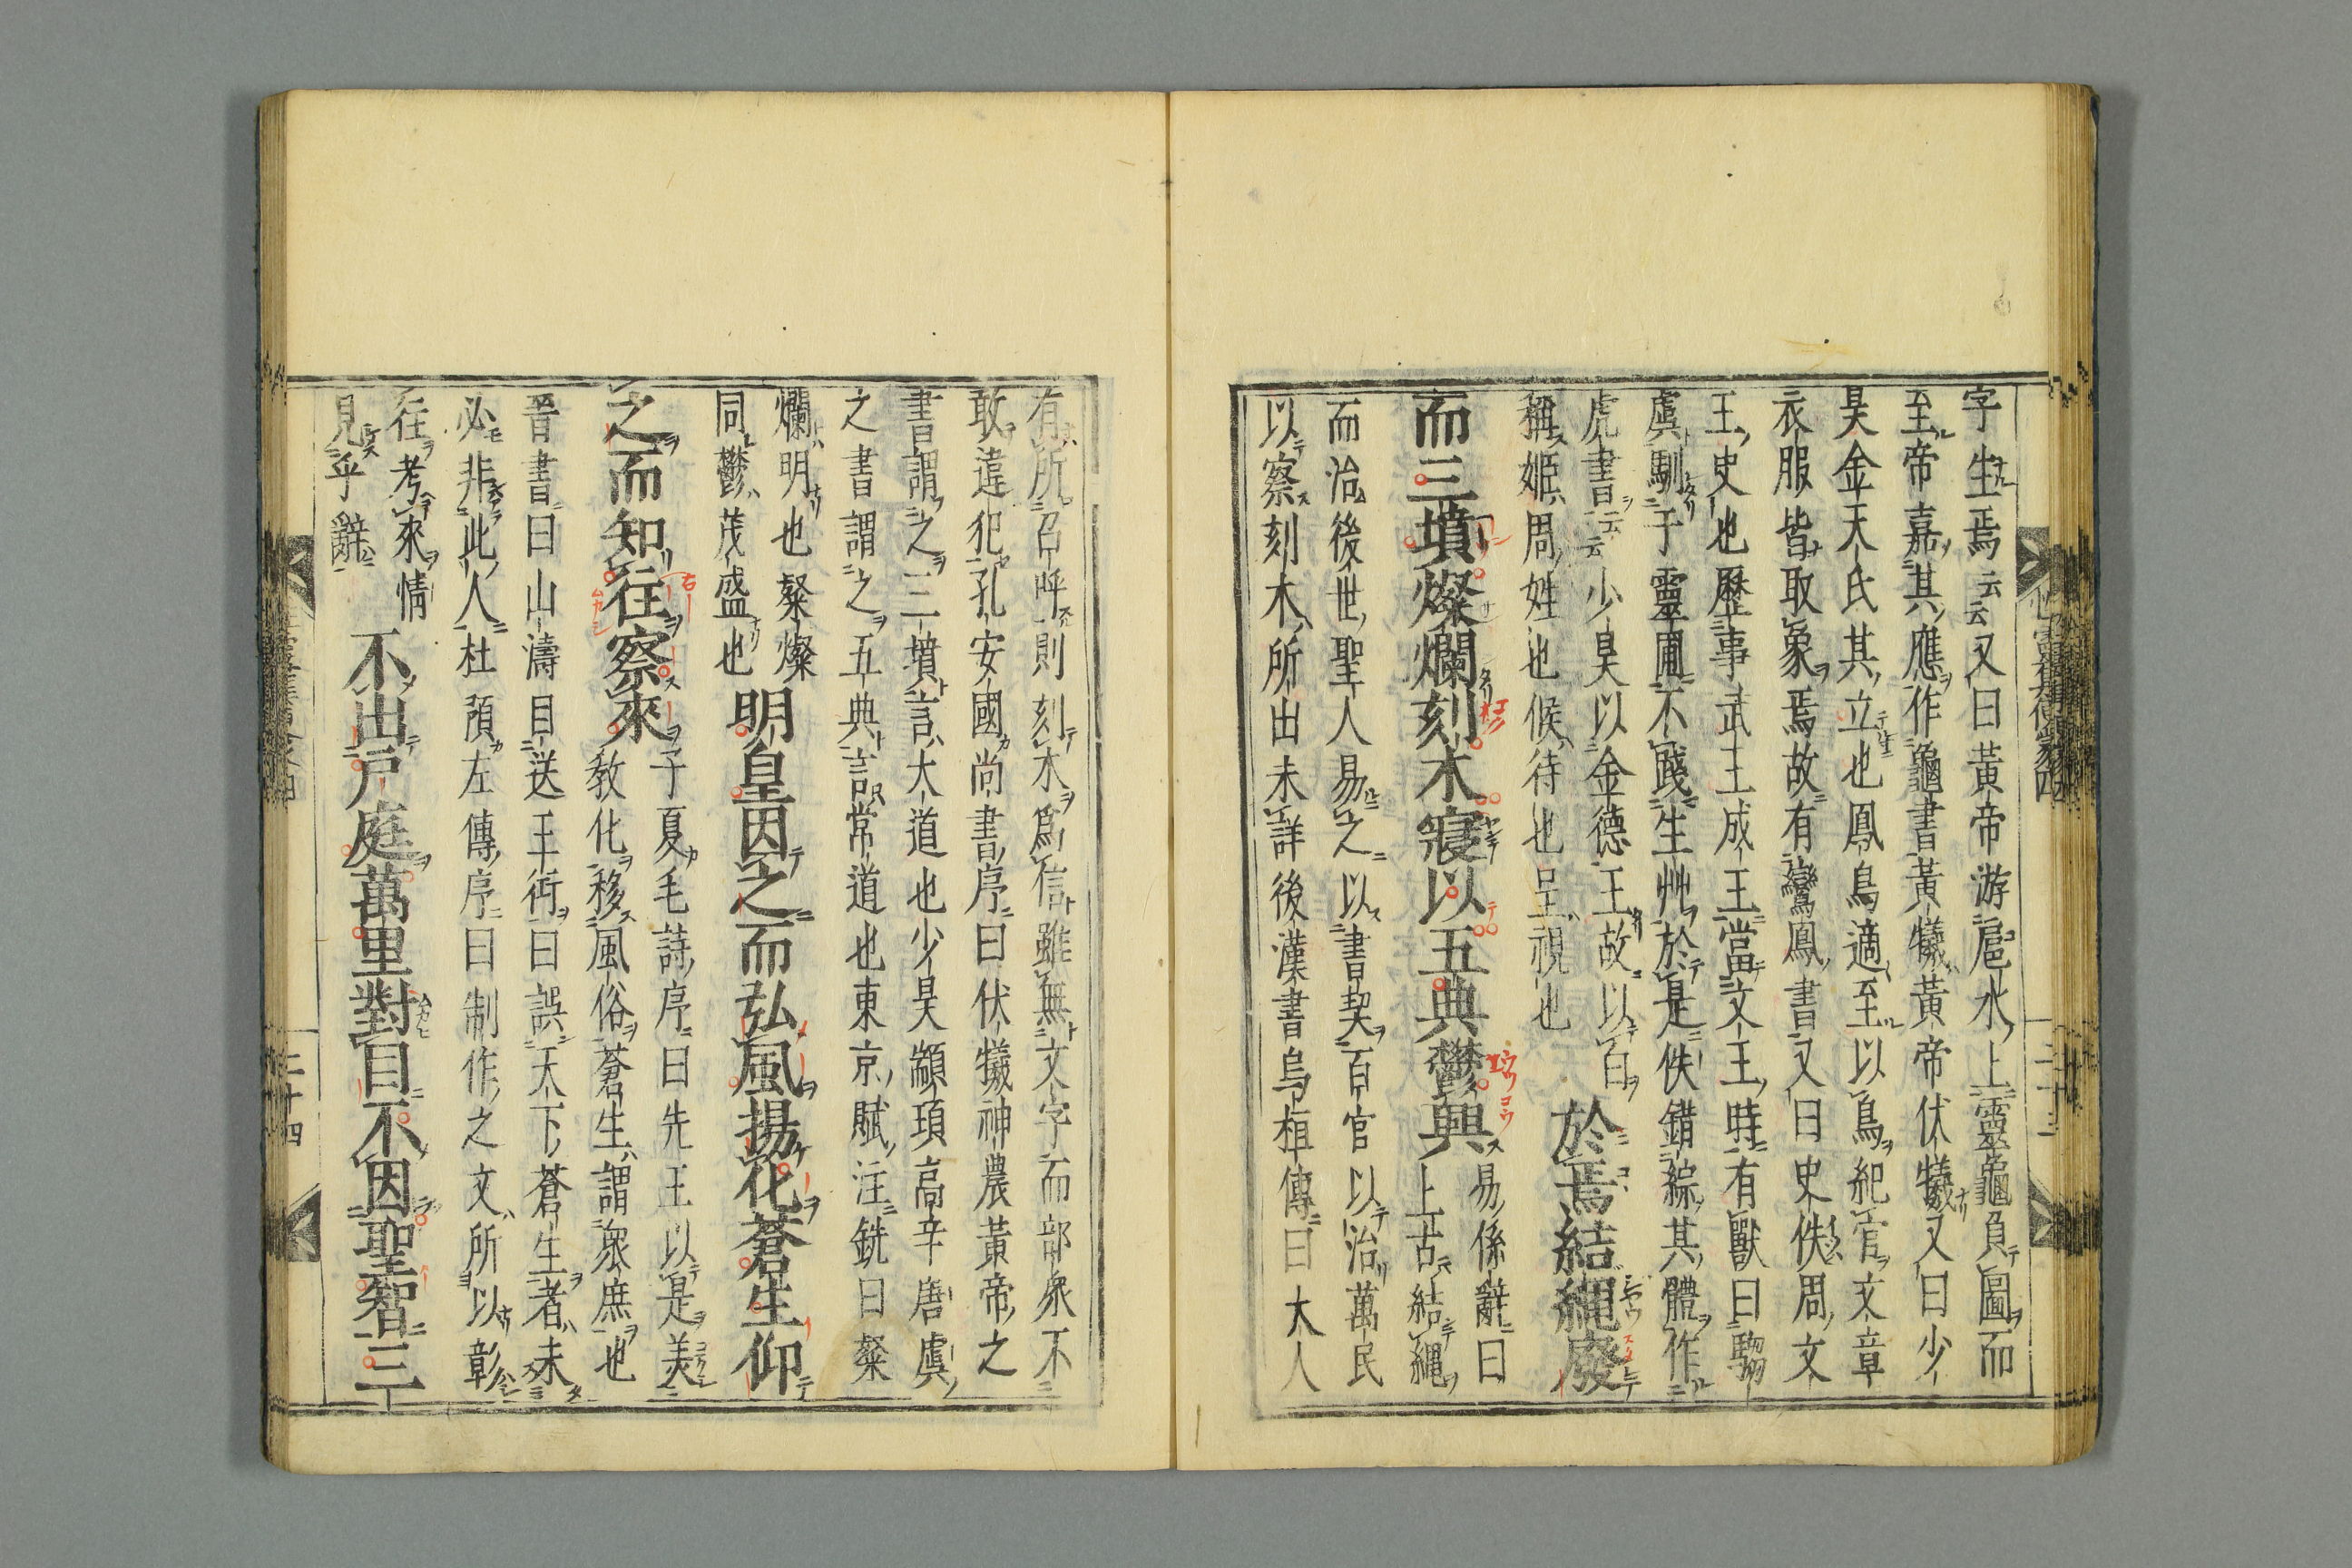 字生焉云云又曰黃帝游扈水上靈龜負圖而
至帝嘉其應作龜書黃犧黃帝伏犧又曰少
昊金天氏其立也鳳鳥適至以鳥紀官文章
衣服皆取象焉故有鸞鳳書又曰史佚周文
王史也歷事武王成王當文王時有獸曰騶
虞馴于靈囿不踐生艸於是佚錯綜其體作
虎書云云少昊以金德王故以百
稱姬周姓也候待也呈視也
於焉結繩廢
而三墳燦爛刻木寢以五典鬱興
易係辭曰
上古結繩
而治後世聖人易之以書契百官以治萬民
以察刻木所出未詳後漢書烏桓傳曰大人
有所召呼則刻木爲信雖無文字而部衆不
敢違犯孔安國尚書序曰伏犧神農黃帝之
書謂之三墳言大道也少昊顓頊高辛唐虞
之書謂之五典言常道也東京賦注銑曰粲
爛明也粲燦
同鬱茂盛也
明皇因之而弘風揚化蒼生仰
之而知往察來
子夏毛詩序曰先王以是美
敎化移風俗蒼生謂衆庶也
晉書曰山濤目送王衍曰誤天下蒼生者未
必非此人杜預左傳序曰制作之文所以彰
往考來情
見乎辭
不出戶庭萬里對目不因聖智三
二十四